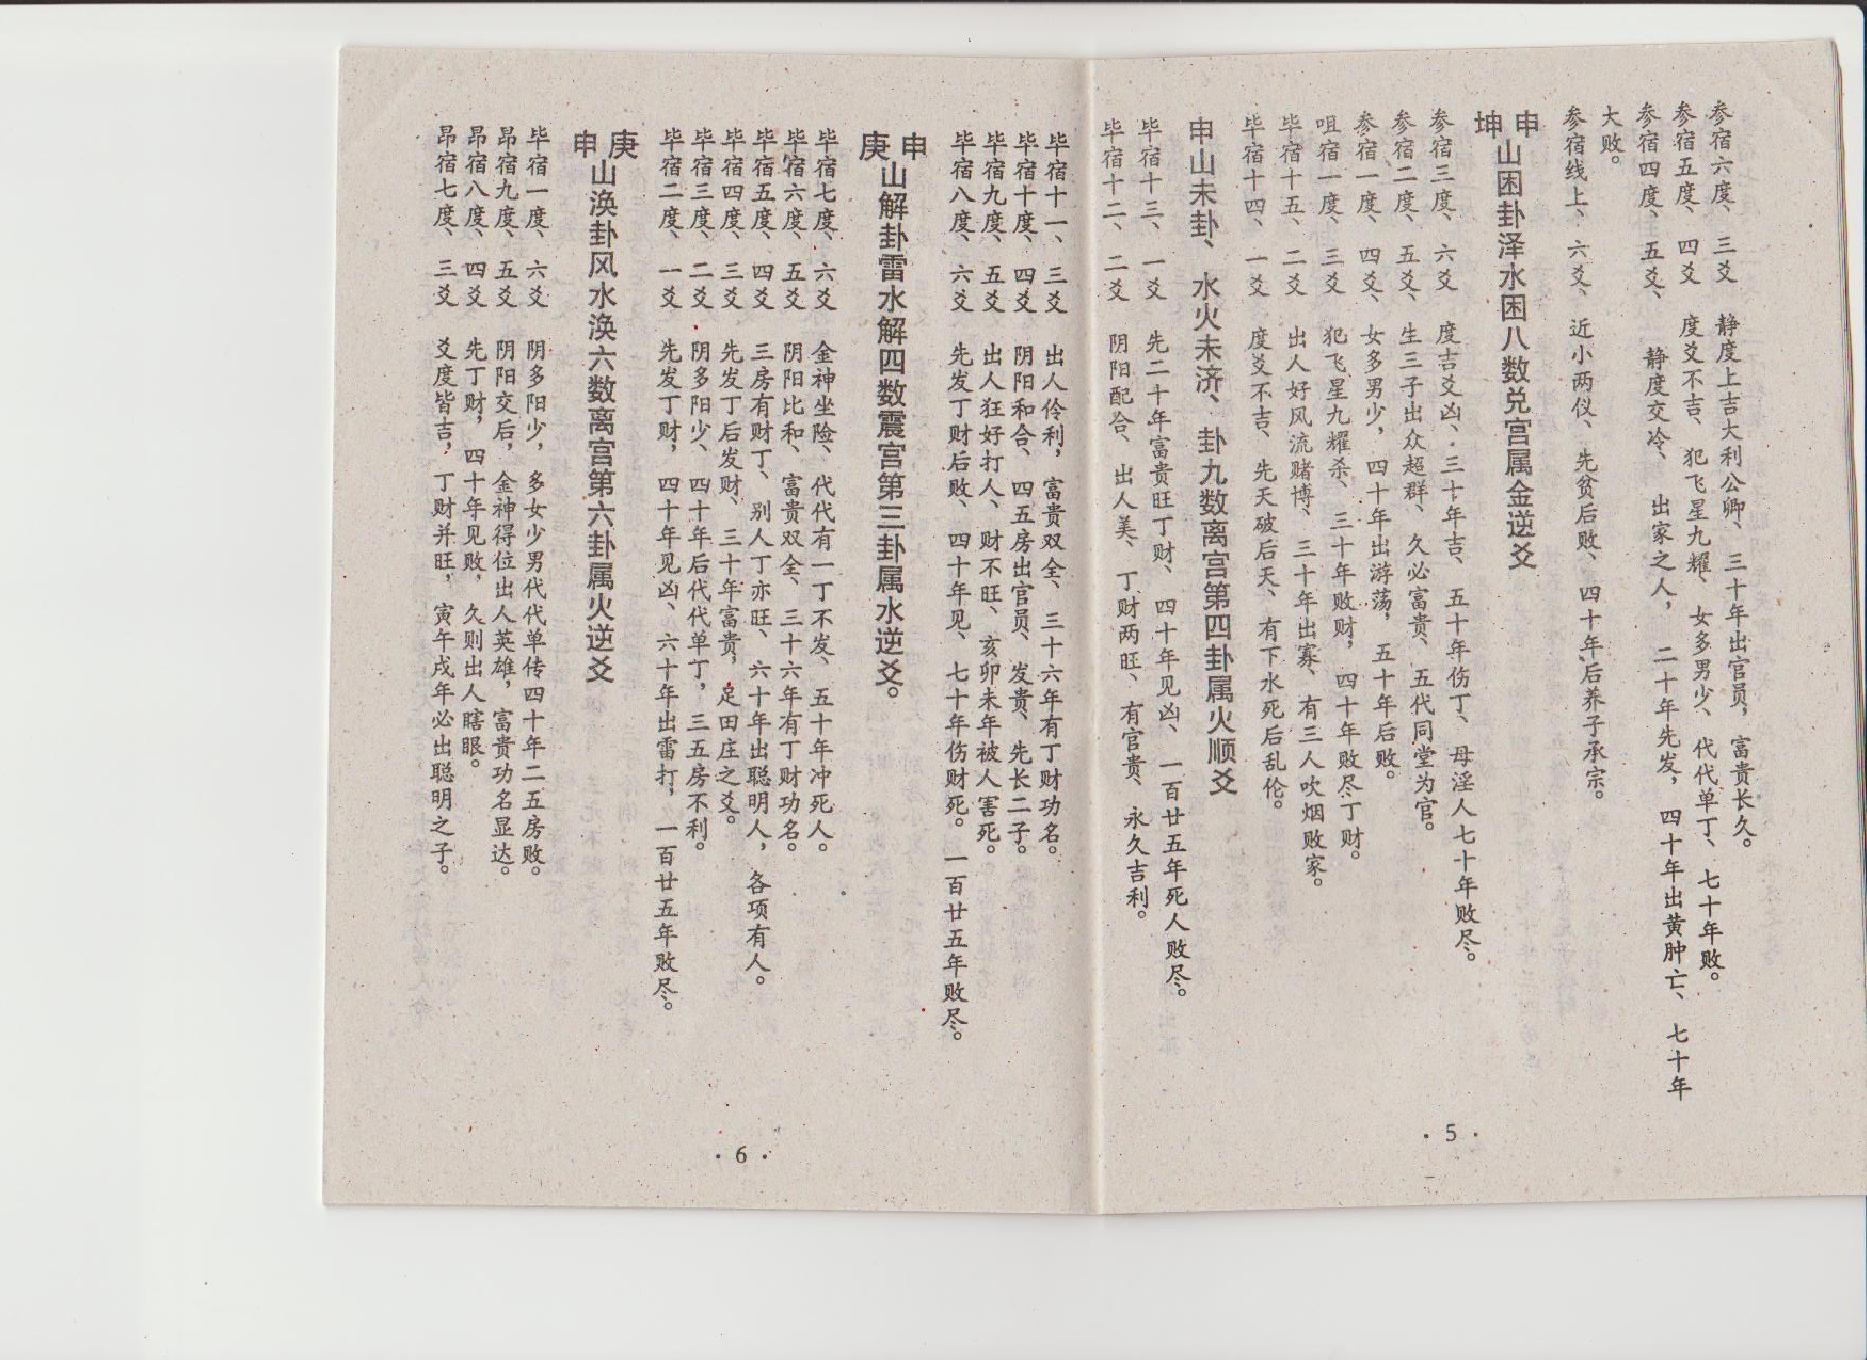 参宿六度、三爻 静度上吉大利公卿、三十年出官员，富贵长久。
参宿五度、四爻 度爻不吉、犯飞星九耀、女多男少、代代单丁、七十年败。
参宿四度、五爻、静度交冷、出家之人，二十年先发，四十年出黄肿亡、七十年
大败。
参宿线上、六爻、近小两仪、先贫后败、四十年后养子承宗。
申坤山困卦泽水困八数兑宫属金逆爻
参宿三度、六爻 度吉爻凶、三十年吉、五十年伤丁、母淫人七十年败尽。
参宿二度、五爻、生三子出众超群、久必富贵、五代同堂为官。
参宿一度、四爻、女多男少，四十年出游荡，五十年后败。
咀宿一度、三爻 犯飞星九耀杀、三十年败财，四十年败尽丁财。
毕宿十五、二爻 出人好风流赌博、三十年出寡、有三人吹烟败家。
毕宿十四、一爻 度爻不吉、先天破后天、有下水死后乱伦。
申山未卦、水火未济、卦九数离宫第四卦属火顺爻
毕宿十三、一爻 先二十年富贵旺丁财、四十年见凶、一百廿五年死人败尽。
毕宿十二、二爻 阴阳配合、出人美、丁财两旺、有官贵、永久吉利。
· 5 ·
毕宿十一、三爻 出人伶利，富贵双全、三十六年有丁财功名。
毕宿十度、四爻 阴阳和合、四五房出官员、发贵、先长二子。
毕宿九度、五爻 出人狂好打人、财不旺、亥卯未年被人害死。
毕宿八度、六爻 先发丁财后败、四十年见、七十年伤财死。一百廿五年败尽。
申庚山解卦雷水解四数震宫第三卦属水逆爻。
毕宿七度、六爻 金神坐险、代代有一丁不发、五十年冲死人。
毕宿六度、五爻 阴阳比和、富贵双全、三十六年有丁财功名。
毕宿五度、四爻 三房有财丁、别人丁亦旺、六十年出聪明人，各项有人。
毕宿四度、三爻 先发丁后发财、三十年富贵，足田庄之爻。
毕宿三度、二爻 阴多阳少、四十年后代代单丁，三五房不利。
毕宿二度、一爻 先发丁财，四十年见凶、六十年出雷打，一百廿五年败尽。
庚申山涣卦风水涣六数离宫第六卦属火逆爻
毕宿一度、六爻 阴多阳少，多女少男代代单传四十年二五房败。
昂宿九度、五爻 阴阳交后，金神得位出人英雄，富贵功名显达。
昂宿八度、四爻 先丁财，四十年见败，久则出人瞎眼。
昂宿七度、三爻 爻度皆吉，丁财并旺，寅午戌年必出聪明之子。
· 6 ·